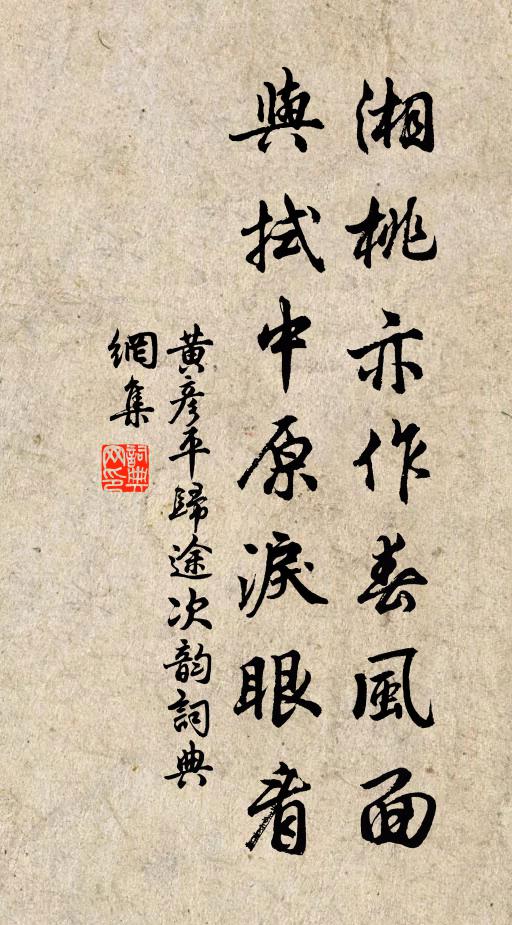 湘桃亦作春風面
與拭中原淚眼看
黃彥平歸途次韵詞典
網集
詞典網印